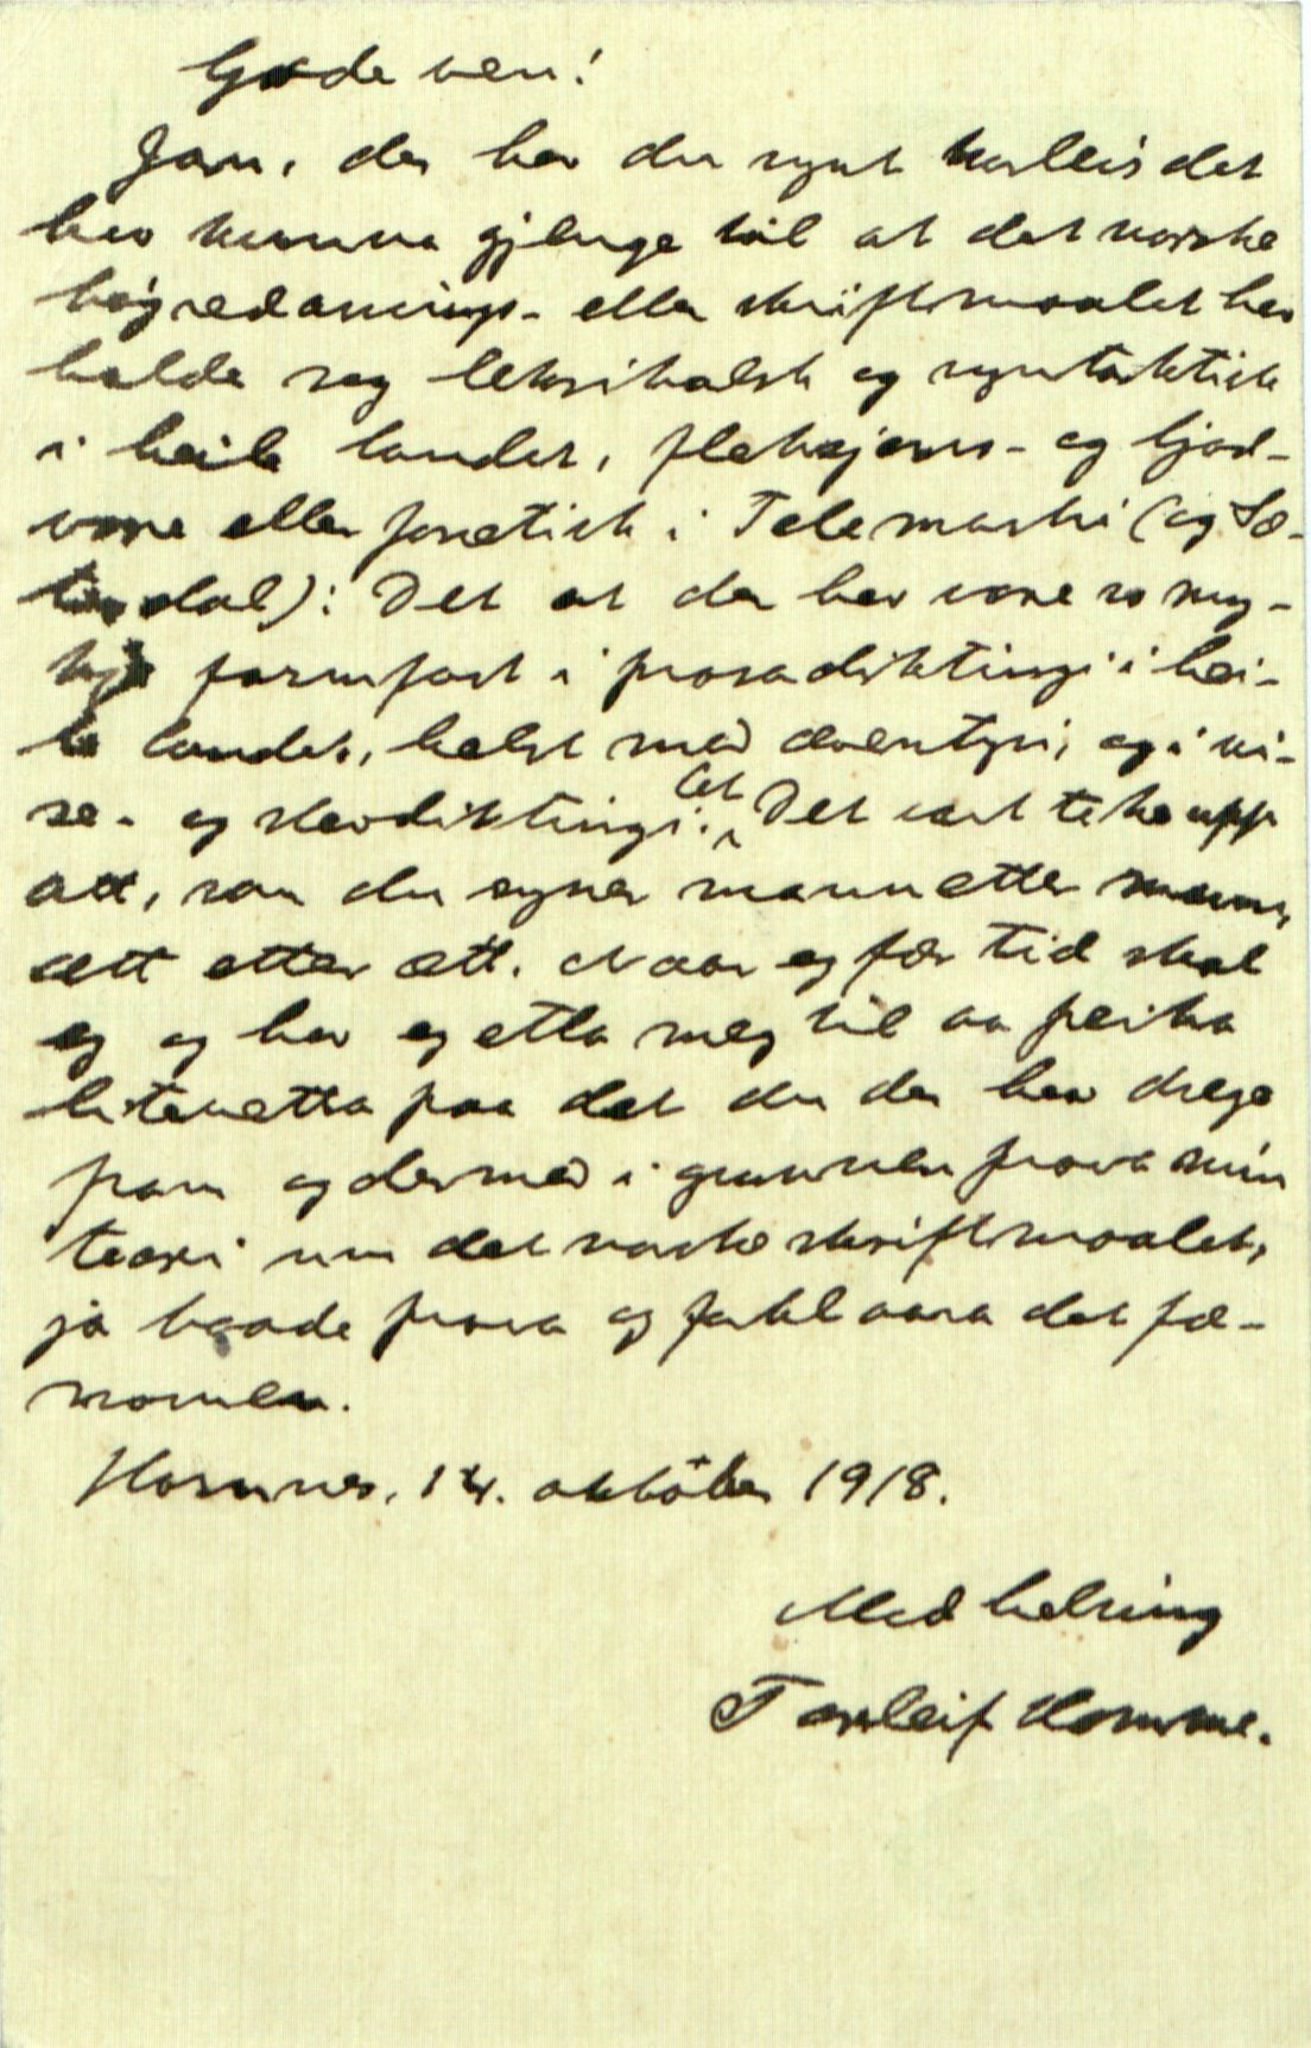 Gode ven!
Jau, der hev du synt korleis det
hev kunna gjenge til at det norske
högredanings- eller skriftmaalet hev
halde seg leksikalsk og syntaktisk
i heile landet, fleksjons- og ljod-
vore eller fonetisk i Telemarki (og Sæ-
tesdal): Det at der hev vore so my-
kje formfast i prosadiktingi i hei-
le landet, helst med æventyri, og i vi-
se- og stevdiktingi. Det vart teke upp
att, som du syner mann etter mann,
ætt etter ætt. Naar eg fær tid skal
eg og hev eg etla meg til aa peika
litevetta paa det du der hev drege
fram og dermed i grunnen prova min
teori um det norske skriftmaalet,
ja baade prova og forklaara det fæ-
nomen.
Hornnes, 14. oktober 1918.
Med helsing
Torleif Homme.